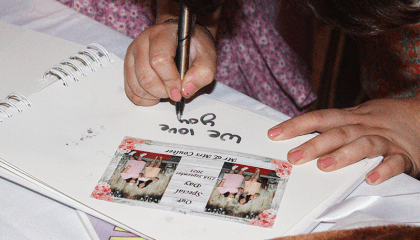 We love
you
Our
Special
Day
2021
September
Mr & Mrs Coulter